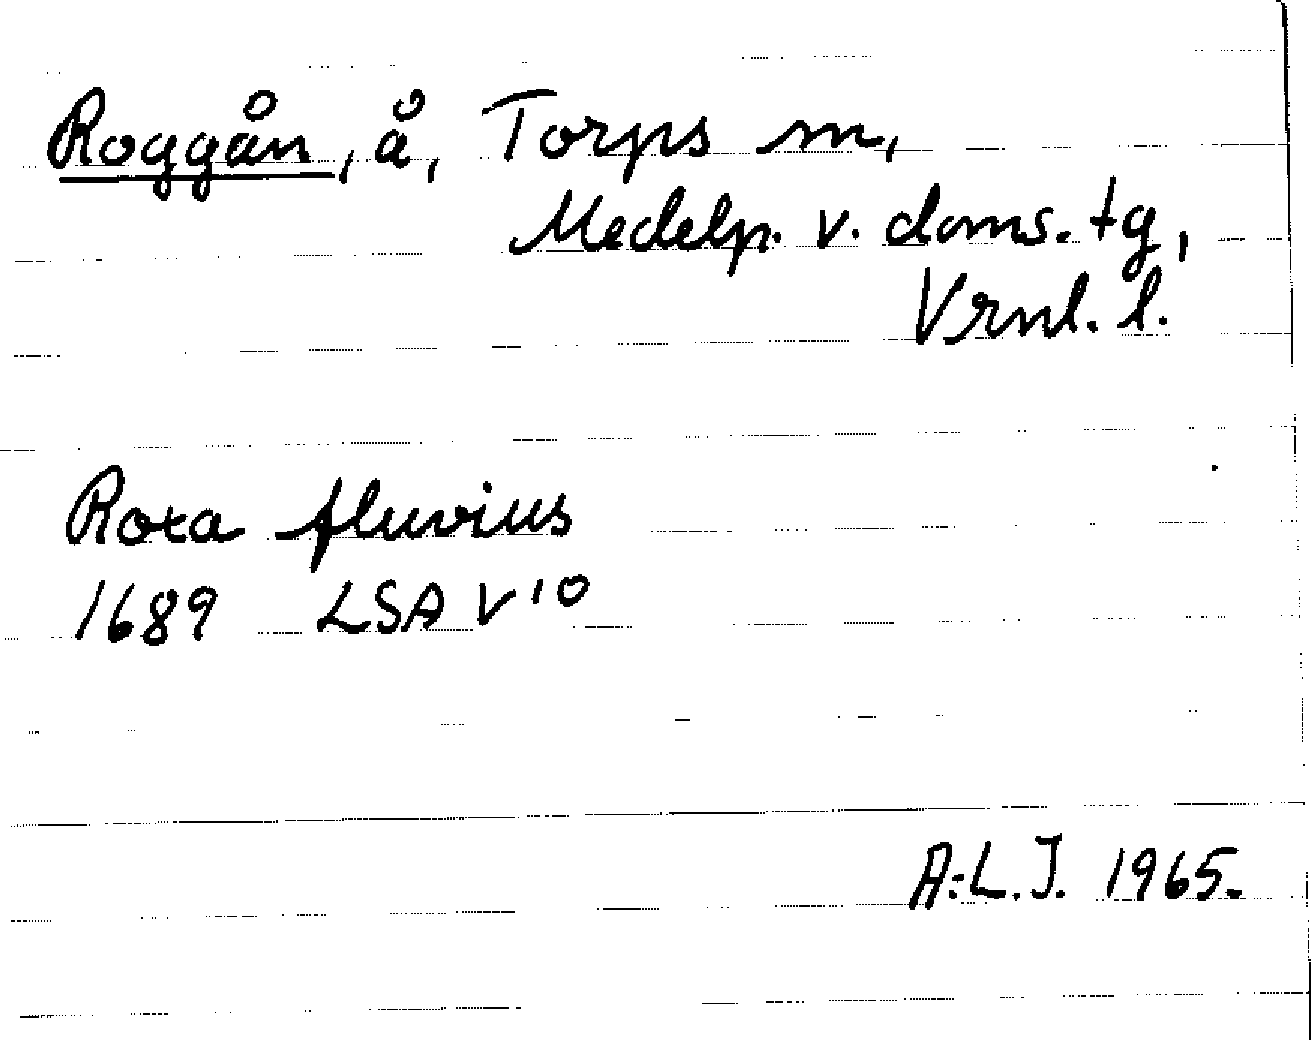 Roggån, å, Torps sn,
Medelp. v. doms. tg,
Vrnl. l.
Roxa fluvius
1689 LSA V 10
A:L.J. 1965.